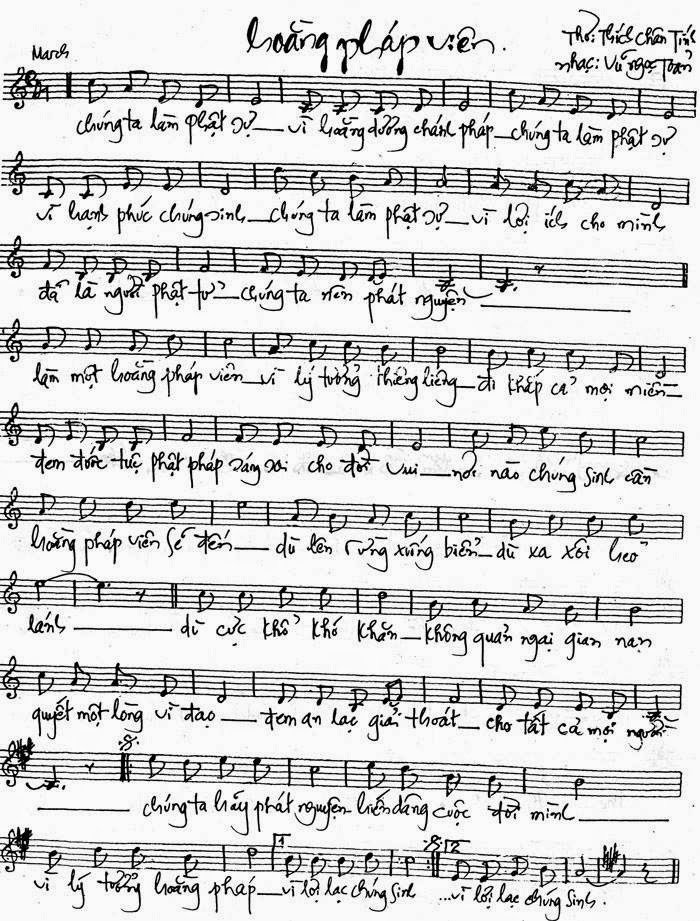 hoằng pháp viên.
Thơ: Thích Chân Tính
March
nhạc: Vũ Ngọc Toản
2/4
chúng ta làm phật sự — vì hoằng dương chánh pháp — chúng ta làm phật sự
vì hạnh phúc chúng sinh — chúng ta làm phật sự — vì lợi ích cho mình
đã là người phật tử — chúng ta nên phát nguyện —
làm một hoằng pháp viên — vì lý tưởng thiêng liêng — đi khắp cả mọi miền —
đem đuốc tuệ phật pháp sáng soi cho đời vui — nơi nào chúng sinh cần
hoằng pháp viên sẽ đến — dù lên rừng xuống biển — dù xa xôi hẻo
lánh — dù cực khổ khó khăn — không quản ngại gian nan
quyết một lòng vì đạo — đem an lạc giải thoát — cho tất cả mọi người
— chúng ta hãy phát nguyện hiến dâng cuộc đời mình —
1 2
vì lý tưởng hoằng pháp — vì lợi lạc chúng sinh ... vì lợi lạc chúng sinh.